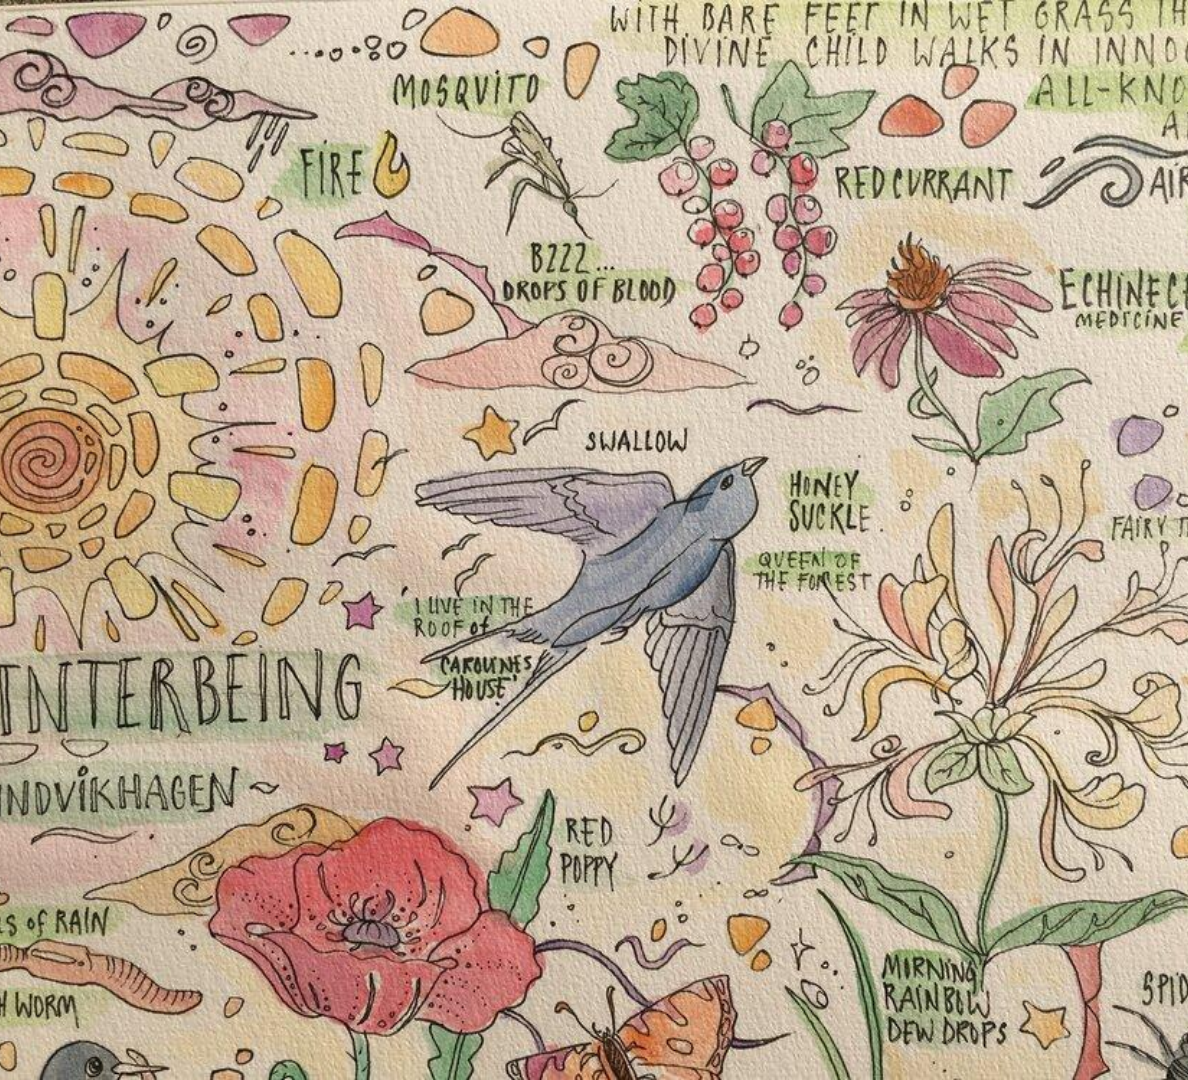 WITH BARE FEET IN WET GRASS
DIVINE CHILD WALKS IN
MOSQUITO
FIRE
REDCURRANT
BZZZ...
DROPS OF BLOOD
MEDICINE
SWALLOW
HONEY
SUCKLE
QUEEN OF
THE FOREST
FAIRY
I LIVE IN THE
ROOF of
CAROLINES
HOUSE'
INTERBEING
RED
POPPY
of RAIN
WORM
MORNING
RAINBOW
DEW DROPS